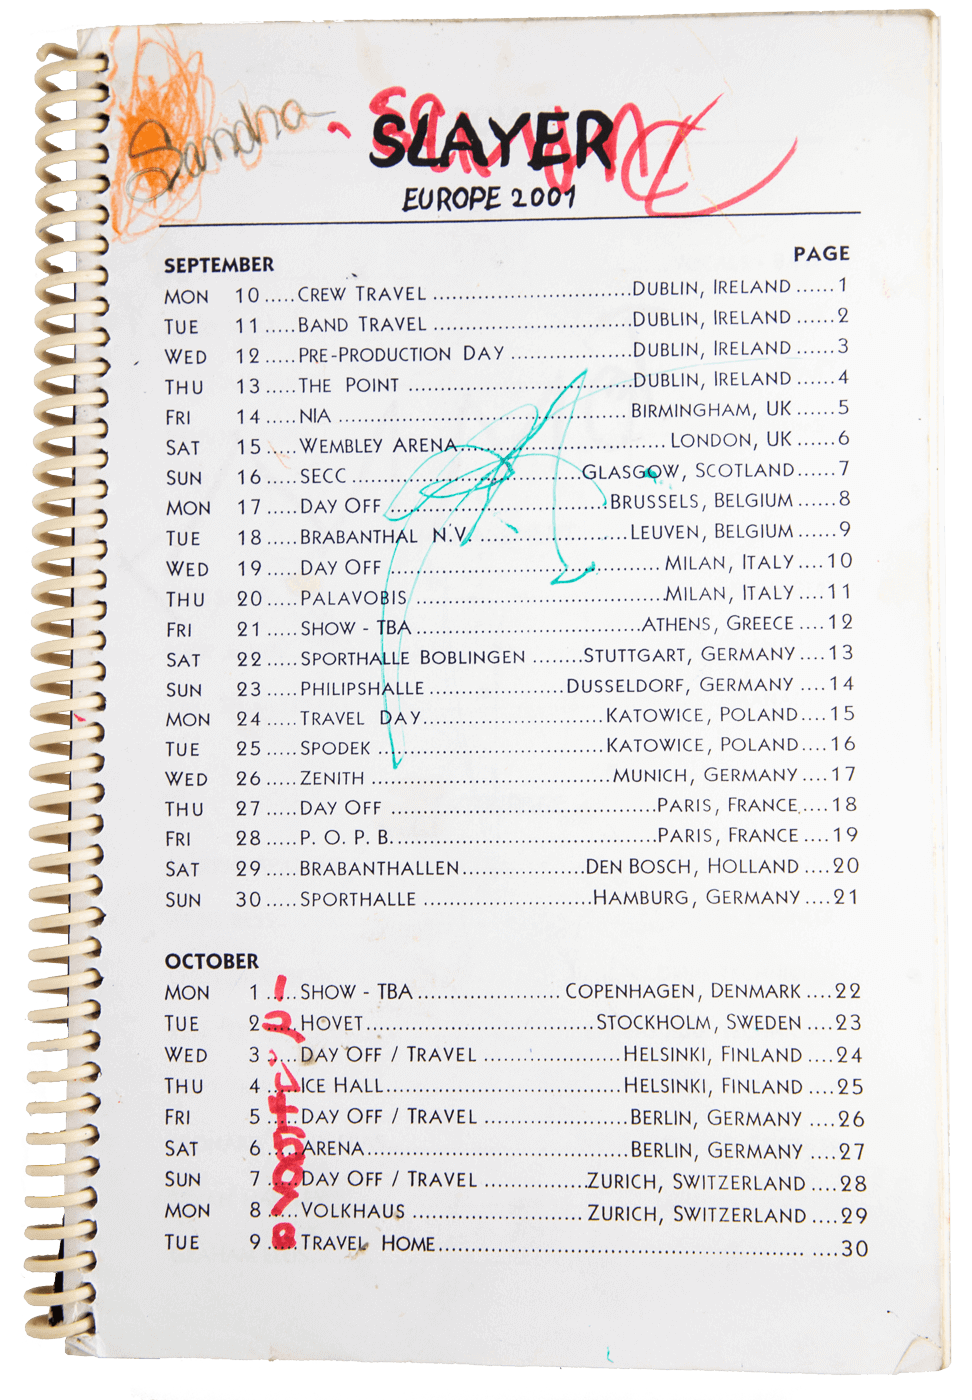 Sandra
SLAYER
EUROPE 2001
SEPTEMBER PAGE
MON 10.....CREW TRAVEL ................................DUBLIN, IRELAND ......1
TUE 11.....BAND TRAVEL ................................DUBLIN, IRELAND ......2
WED 12.....PRE-PRODUCTION DAY ....................DUBLIN, IRELAND ......3
THU 13.....THE POINT ....................................DUBLIN, IRELAND ......4
FRI 14.....NIA ...............................................BIRMINGHAM, UK ......5
SAT 15.....WEMBLEY ARENA...................................LONDON, UK ......6
SUN 16.....SECC .....................................GLASGOW, SCOTLAND ......7
MON 17.....DAY OFF ....................................BRUSSELS, BELGIUM ......8
TUE 18.....BRABANTHAL N.V. ........................LEUVEN, BELGIUM ......9
WED 19.....DAY OFF ............................................MILAN, ITALY ....10
THU 20.....PALAVOBIS ........................................MILAN, ITALY ....11
FRI 21.....SHOW - TBA....................................ATHENS, GREECE ....12
SAT 22.....SPORTHALLE BOBLINGEN ........STUTTGART, GERMANY ....13
SUN 23.....PHILIPSHALLE ......................DUSSELDORF, GERMANY ....14
MON 24.....TRAVEL DAY.............................KATOWICE, POLAND....15
TUE 25.....SPODEK .....................................KATOWICE, POLAND....16
WED 26.....ZENITH .......................................MUNICH, GERMANY....17
THU 27.....DAY OFF ...........................................PARIS, FRANCE....18
FRI 28.....P. O. P. B..........................................PARIS, FRANCE....19
SAT 29.....BRABANTHALLEN....................DEN BOSCH, HOLLAND ....20
SUN 30.....SPORTHALLE ...........................HAMBURG, GERMANY ....21
OCTOBER
MON 1.....SHOW - TBA....................... COPENHAGEN, DENMARK ....22
TUE 2.....HOVET.....................................STOCKHOLM, SWEDEN ....23
WED 3.....DAY OFF / TRAVEL .......................HELSINKI, FINLAND ....24
THU 4.....ICE HALL.......................................HELSINKI, FINLAND ....25
FRI 5.....DAY OFF / TRAVEL ........................BERLIN, GERMANY ....26
SAT 6.....ARENA...........................................BERLIN, GERMANY ....27
SUN 7.....DAY OFF / TRAVEL .................ZURICH, SWITZERLAND ....28
MON 8.....VOLKHAUS ............................ ZURICH, SWITZERLAND ....29
TUE 9.....TRAVEL HOME............................................................ ....30